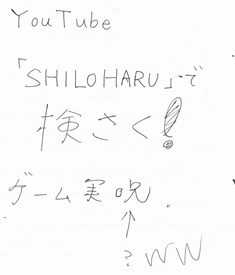 YouTube
「SHILOHARU」で
検さく!
ゲーム実呪
↑
?ww